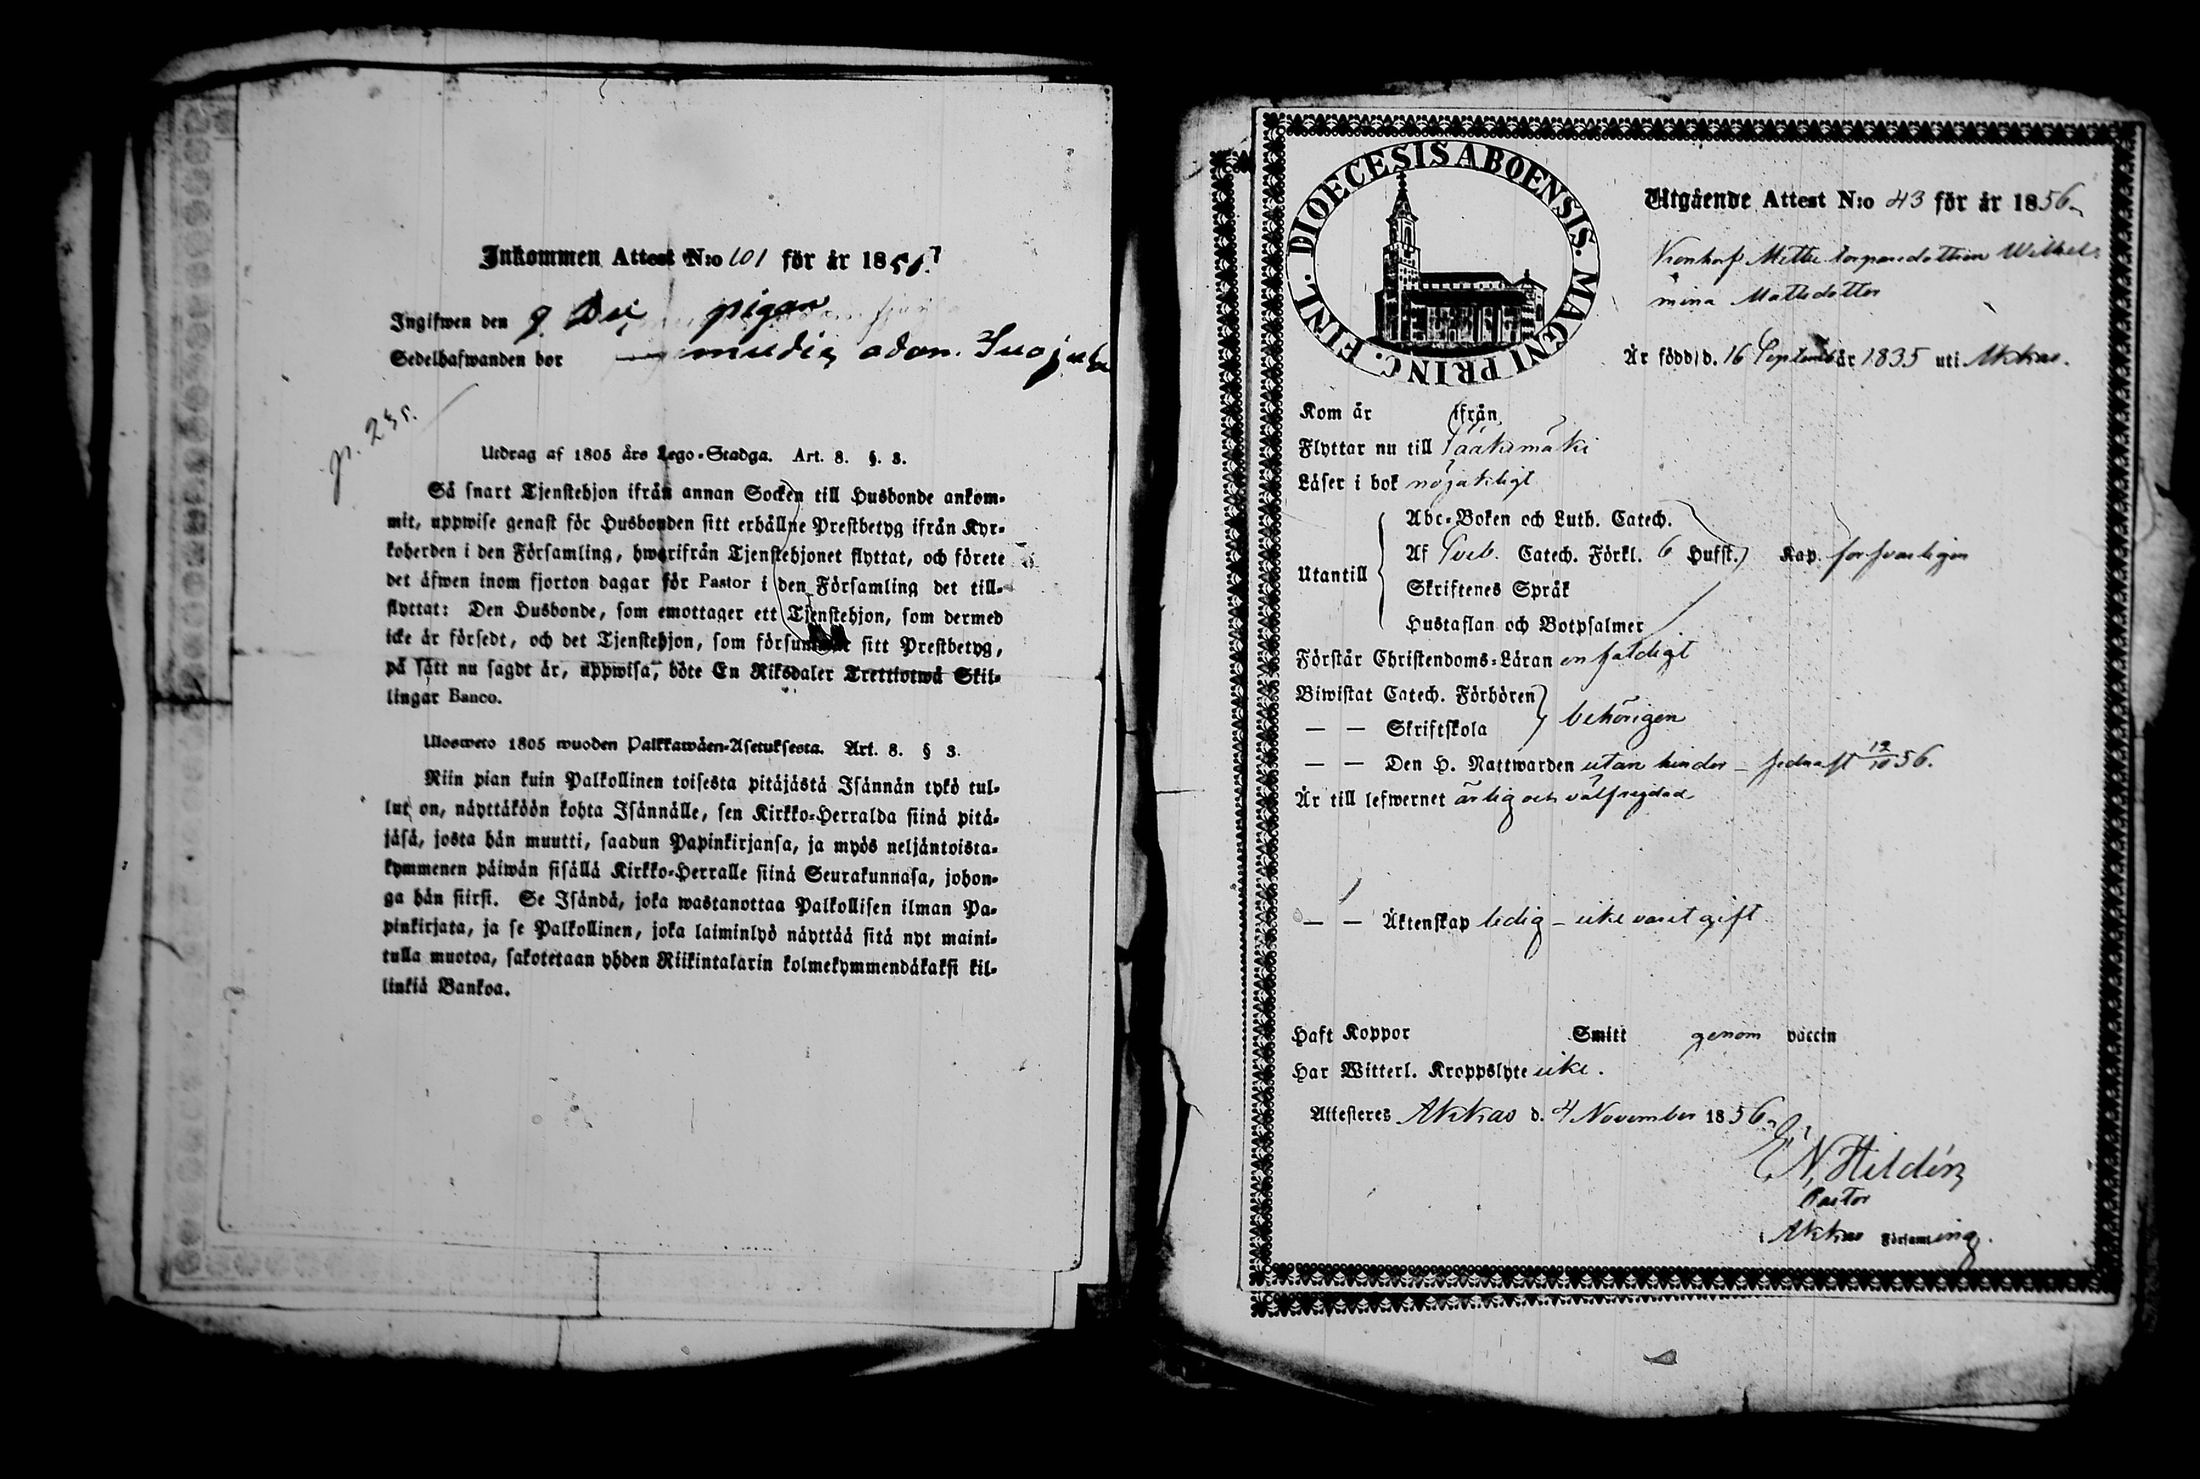 Inkommen Attest N:o 101 för år 185
Ingifwen den 9 pigan
Sedelhafwanden bor
p. 235.
Utdrag af 1805 års Lego-Stadga. Art. 8. §. 3.
Så snart Tjenstehjon ifrån annan Socken till Husbonde ankom-
mit, uppwise genast för Husbonden sitt erhållne Prestbetyg ifrån Kyr-
koherden i den Församling, hwarifrån Tjenstehjonet flyttat, och förete
det äfwen inom fjorton dagar för Pastor i den Församling det till-
flyttat: Den Husbonde, som emottager ett Tjenstehjon, som dermed
icke är försedt, och det Tjenstehjon, som försummar sitt Prestbetyg,
på sätt nu sagdt är, uppwisa, böte En Riksdaler Trettiotwå Skil-
lingar Banco.
Ulosweto 1805 wuoden Palkkawäen-Asetuksesta. Art. 8. § 3.
Niin pian kuin Palkollinen toisesta pitäjästä Isännän tykö tul-
lut on, näyttäköön kohta Isännälle, sen Kirkko-Herralda siinä pitä-
jäsä, josta hän muutti, saadun Papinkirjansa, ja myös neljäntoista-
kymmenen päiwän sisällä Kirkko-Herralle siinä Seurakunnasa, johon-
ga hän siirsi. Se Isändä, joka wastanottaa Palkollisen ilman Pa-
pinkirjata, ja se Palkollinen, joka laiminlyö näyttää sitä nyt maini-
tulla muotoa, sakotetaan yhden Riikintalarin kolmekymmendäkaksi kil-
linkiä Bankoa.
DIOECESIS ABOENSIS. MAGNI PRINC. FINL.
Utgående Attest N:o 43 för år 1856
torparedottren Wilhel-
mina Mattsdotter
Är född d. 16 September år 1835 uti Akkas.
Kom år ifrån
Flyttar nu till Sääksmäki
Läser i bok nöjaktligt
Utantill
Abc-Boken och Luth. Catech.
Af Sveb. Catech. Förkl. 6 Hufst. Kap. försvarligen
Skriftenes Språk
Hustaflan och Botpsalmer
Förstår Christendoms-Läran enfaldigt
Biwistat Catech. Förhören
— — Skriftskola behörigen
— — Den H. Nattwarden utan hinder – sednast 12/10 56.
Är till lefwernet ärlig och välfrejdad
— — Äktenskap ledig – icke varit gift
Haft Koppor Smitt genom vaccin
Har Witterl. Kroppslyte icke.
Attesteres Akkas d. 4 November 1856
E N Hildén
Pastor
i Akkas Församling.